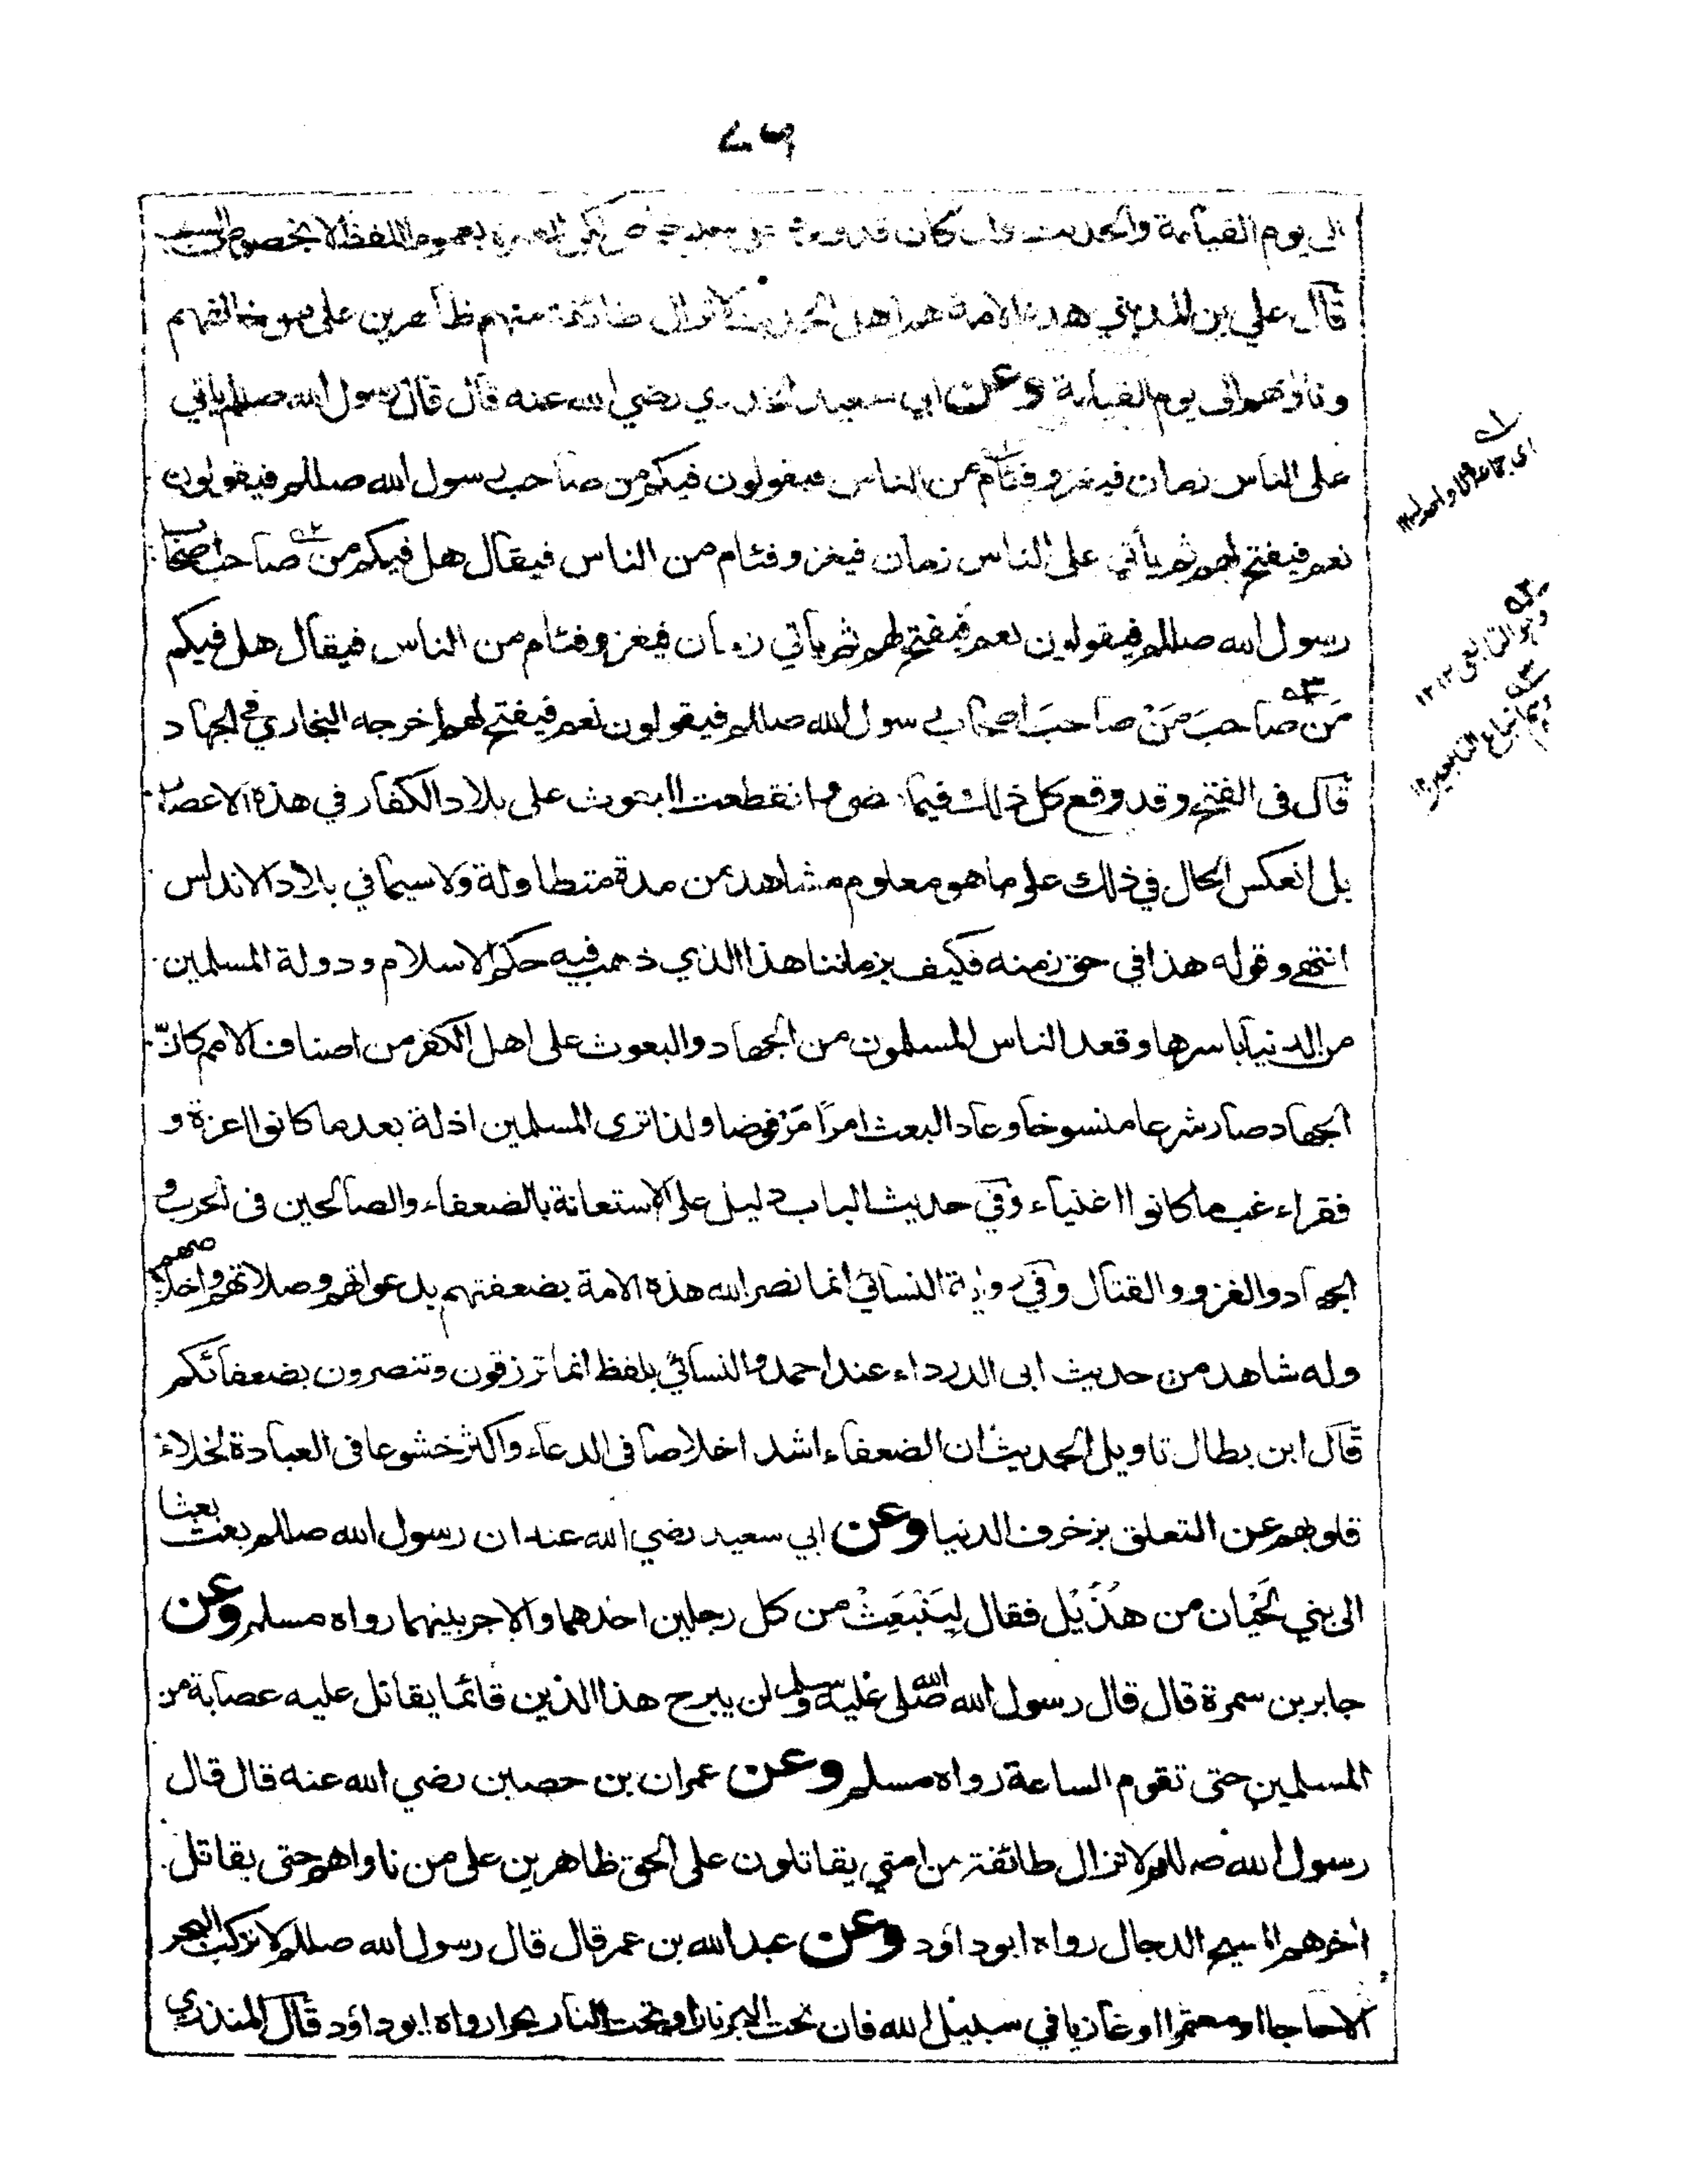 ٧٩
الى يوم القيامة والحديث وان كان قد ورد على سبب خاص لكن العبرة بعموم اللفظ لا بخصوص السبب
قال علي بن المديني هذه الامة هم اهل الحديث لا تزال طائفة منهم ظاهرين على من خالفهم
وناواهم الى يوم القيامة وعن ابي سعيد الخدري رضي الله عنه قال قال رسول الله صللم ياتي
على الناس زمان فيغزو فئام من الناس فيقولون فيكم من صاحب رسول الله صللم فيقولون
نعم فيفتح لهم ثم يأتي على الناس زمان فيغزو فئام من الناس فيقال هل فيكم من صاحب اصحاب
رسول الله صللم فيقولون نعم فيفتح لهم ثم ياتي زمان فيغزو فئام من الناس فيقال هل فيكم
مَن صاحبَ مَنْ صاحبَ اصحاب رسول الله صللم فيقولون نعم فيفتح لهم اخرجه البخاري في الجهاد
قال فى الفتح وقد وقع كل ذلك فيما مضى وانقطعت البعوث على بلاد الكفار في هذه الاعصار
بل انعكس الحال في ذلك على ما هو معلوم مشاهد من مدة متطاولة ولا سيما في بلاد الاندلس
انتهى وقوله هذا في حق زمنه فكيف بزماننا هذا الذي ذهب فيه حكم الاسلام ودولة المسلمين
من الدنيا باسرها وقعد الناس المسلمون من الجهاد والبعوث على اهل الكفر من اصناف الامم كانّ
الجهاد صار شرعا منسوخا وعاد البعث امرًا مَرْفوضا ولذا ترى المسلمين اذلة بعد ما كانوا اعزة و
فقراء غب ما كانوا اغنياء وفي حديث الباب دليل على الاستعانة بالضعفاء والصالحين فى الحرب و
الجهاد والغزو والقتال وفي رواية النسائي انما نصر الله هذه الامة بضعفتهم بدعواتهم وصلاتهم واخلاصهم
وله شاهد من حديث ابى الدرداء عند احمد والنسائي بلفظ انما ترزقون وتنصرون بضعفائكم
قال ابن بطال تاويل الحديث ان الضعفاء اشد اخلاصا فى الدعاء واكثر خشوعا فى العبادة لخلاء
قلوبهم عن التعلق بزخرف الدنيا وعن ابي سعيد رضي الله عنه ان رسول الله صللم بعث بعثا
الى بني لَحْيان من هُذَيْل فقال لِيَنْبَعِثْ من كل رجلين احدهما والاجر بينهما رواه مسلم وعن
جابر بن سمرة قال قال رسول الله صلى الله عليه وسلم لن يبرح هذا الدين قائما يقاتل عليه عصابة من
المسلمين حتى تقوم الساعة رواه مسلم وعن عمران بن حصين رضي الله عنه قال قال
رسول الله صللم لا تزال طائفة من امتي يقاتلون على الحق ظاهرين على من ناواهم حتى يقاتل
اخرهم المسيح الدجال رواه ابو داؤد وعن عبد الله بن عمر قال قال رسول الله صللم لا تركب البحر
الا حاجا او معتمرا او غازيا في سبيل الله فان تحت البحر نارا وتحت النار بحرا رواه ابو داؤد قال المنذري
لـ١
اي جماعة
٢
وهو التابعي ١٢
٣
وهم اتباع التابعين ١٢